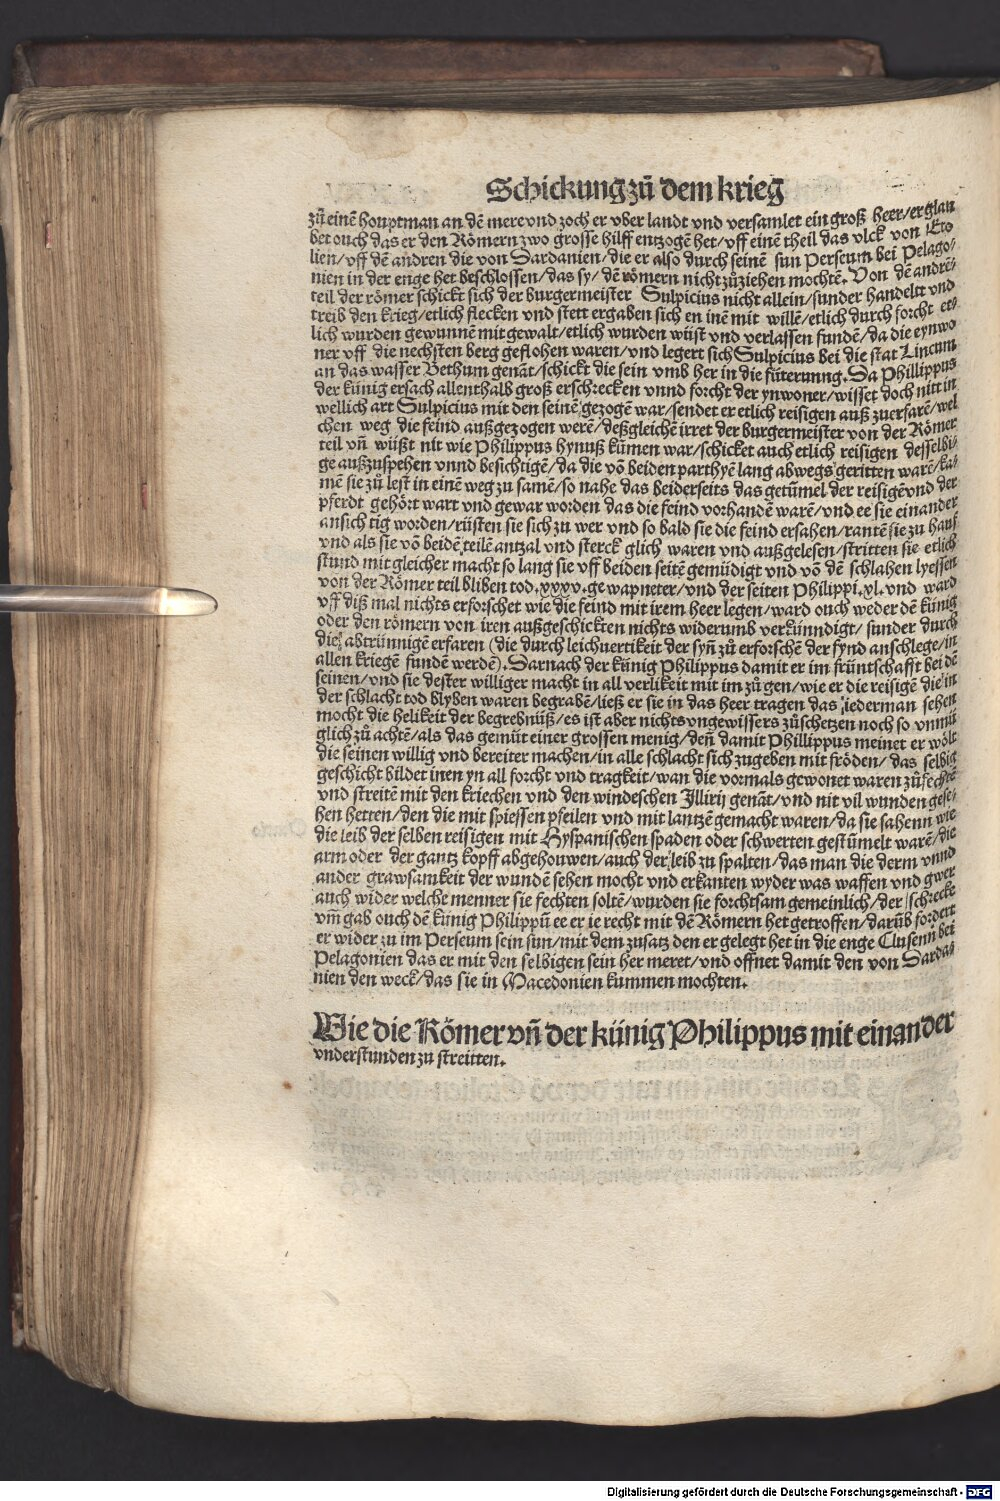 Schickung zů dem krieg
zů einẽ houptman an dẽ mere vnd zoch er vber landt vnd versamlet ein groß heer/er glau
bet ouch das er den Römern zwo grosse hilff entzogẽ het/vff einẽ theil das vlck von Eto
lien/vff dẽ andren die von Dardanien/die er also durch seinẽ sun Perseum bei Pelago/
nien in der enge het beschlossen/das sy/dẽ römern nicht zůziehen mochtẽ. Von dẽ andrẽ/
teil der römer schickt sich der burgermeister Sulpicius nicht allein/sunder handelt vnd
treib den krieg/etlich flecken vnd stett ergaben sich en inẽ mit willẽ/etlich durch forcht et/
lich wurden gewunnẽ mit gewalt/etlich wurden wüst vnd verlassen fundẽ/da die eynwo
ner vff die nechsten berg geflohen waren/vnd legert sich Sulpicius bei die stat Lincum
an das wasser Bethum genãt/schickt die sein vmb her in die fůterunng. Da Phillippus
der künig ersach allenthalb groß erschrecken vnnd forcht der ynwoner/wisset doch nitt in
wellich art Sulpicius mit den seinẽ gezogẽ war/sendet er etlich reisigen auß zuerfarẽ/wel
chen weg die feind außgezogen werẽ/deßgleichẽ irret der burgermeister von der Römer
teil vñ wüßt nit wie Philippus hynuß kümen war/schicket auch etlich reisigen desselbi/
ge außzuspehen vnnd besichtigẽ/da die võ beiden parthyẽ lang abwegs geritten warẽ/ka/
mẽ sie zů lest in einẽ weg zu samẽ/so nahe das beiderseits das getümel der reisigẽ vnd der
pferdt gehört wart vnd gewar worden das die feind vorhandẽ warẽ/vnd ee sie einander
ansich tig worden/rüsten sie sich zu wer vnd so bald sie die feind ersahen/rantẽ sie zu hauf
vnd als sie võ beidẽ teilẽ antzal vnd sterck glich waren vnd außgelesen/stritten sie etlich
stund mit gleicher macht so lang sie vff beiden seitẽ gemüdigt vnd võ dẽ schlahen lyessen
von der Römer teil bliben tod .xxxv. ge wapneter/vnd der seiten Philippi .xl. vnd ward
vff diß mal nichts erforschet wie die feind mit irem heer legen/ward ouch weder dẽ künig
oder den römern von iren außgeschickten nichts widerumb verkünndigt/sunder durch
die abtrünnigẽ erfaren (die durch leichuertikeit der syñ zů erforschẽ der fynd anschlege/in
allen kriegẽ fundẽ werdẽ). Darnach der künig Philippus damit er im früntschafft bei dẽ
seinen/vnd sie dester williger macht in all verlikeit mit im zů gen/wie er die reisigẽ die in
der schlacht tod blyben waren begrabẽ/ließ er sie in das heer tragen das iederman sehen
mocht die helikeit der begrebnüß/es ist aber nichts vngewissers zůschetzen noch so vnmü
glich zů achtẽ/als das gemüt einer grossen menig/deñ damit Phillippus meinet er wölt
die seinen willig vnd bereiter machen/in alle schlacht sich zugeben mit fröden/das selbig
geschicht bildet inen yn all forcht vnd tragkeit/wan die vormals gewonet waren zů fechtẽ
vnd streitẽ mit den kriechen vnd den windeschen Illirij genãt/vnd nit vil wunden gese/
hen hetten/den die mit spiessen pfeilen vnd mit lantzẽ gemacht waren/da sie sahenn wie
die leib der selben reisigen mit Hyspanischen spaden oder schwerten gestümelt warẽ/die
arm oder der gantz kopff abgehouwen/auch der leib zu spalten/das man die derm vnnd
ander grawsamkeit der wundẽ sehen mocht vnd erkanten wyder was waffen vnd gwer
auch wider welche menner sie fechten soltẽ/wurden sie forchtsam gemeinlich/der schrecke
vm̃ gab ouch dẽ künig Philippũ ee er ie recht mit dẽ Römern het getroffen/darũb fordert
er wider zu im Perseum sein sun/mit dem zusatz den er gelegt het in die enge Clusenn bei
Pelagonien das er mit den selbigen sein her meret/vnd offnet damit den von Darda/
nien den weck/das sie in Macedonien kummen mochten.
Wie die Römer vñ der künig Philippus mit einander
vnderstunden zu streitten.
Digitalisierung gefördert durch die Deutsche Forschungsgemeinschaft - DFG